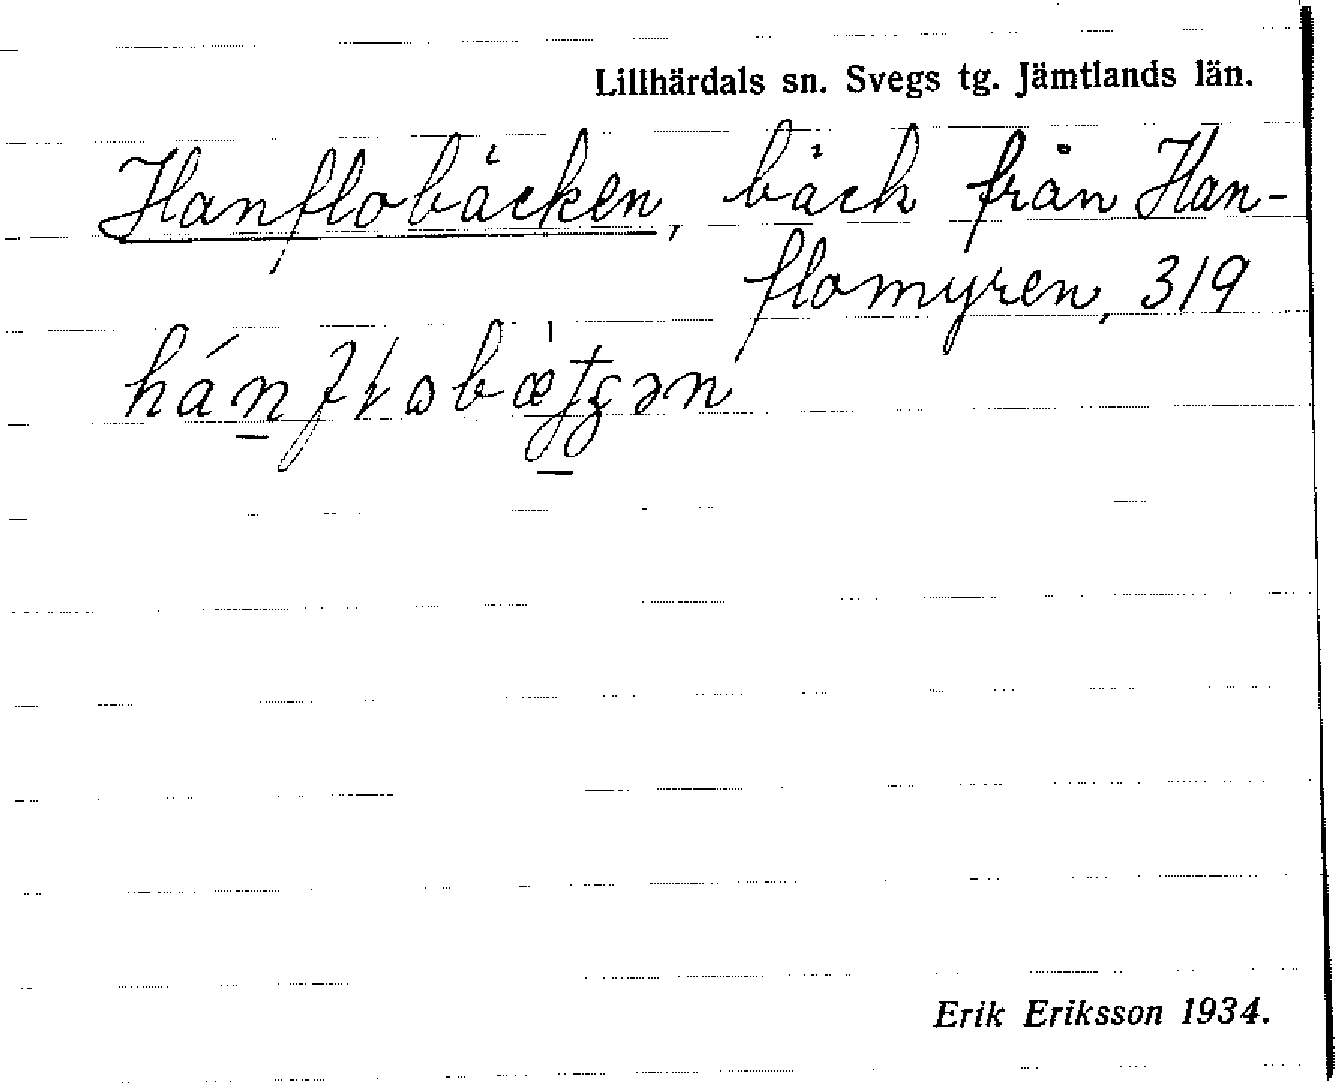 Lillhärdals sn. Svegs tg. Jämtlands län.
Hanflobäcken, bäck från Han-
flomyren, 319
Erik Eriksson 1934.